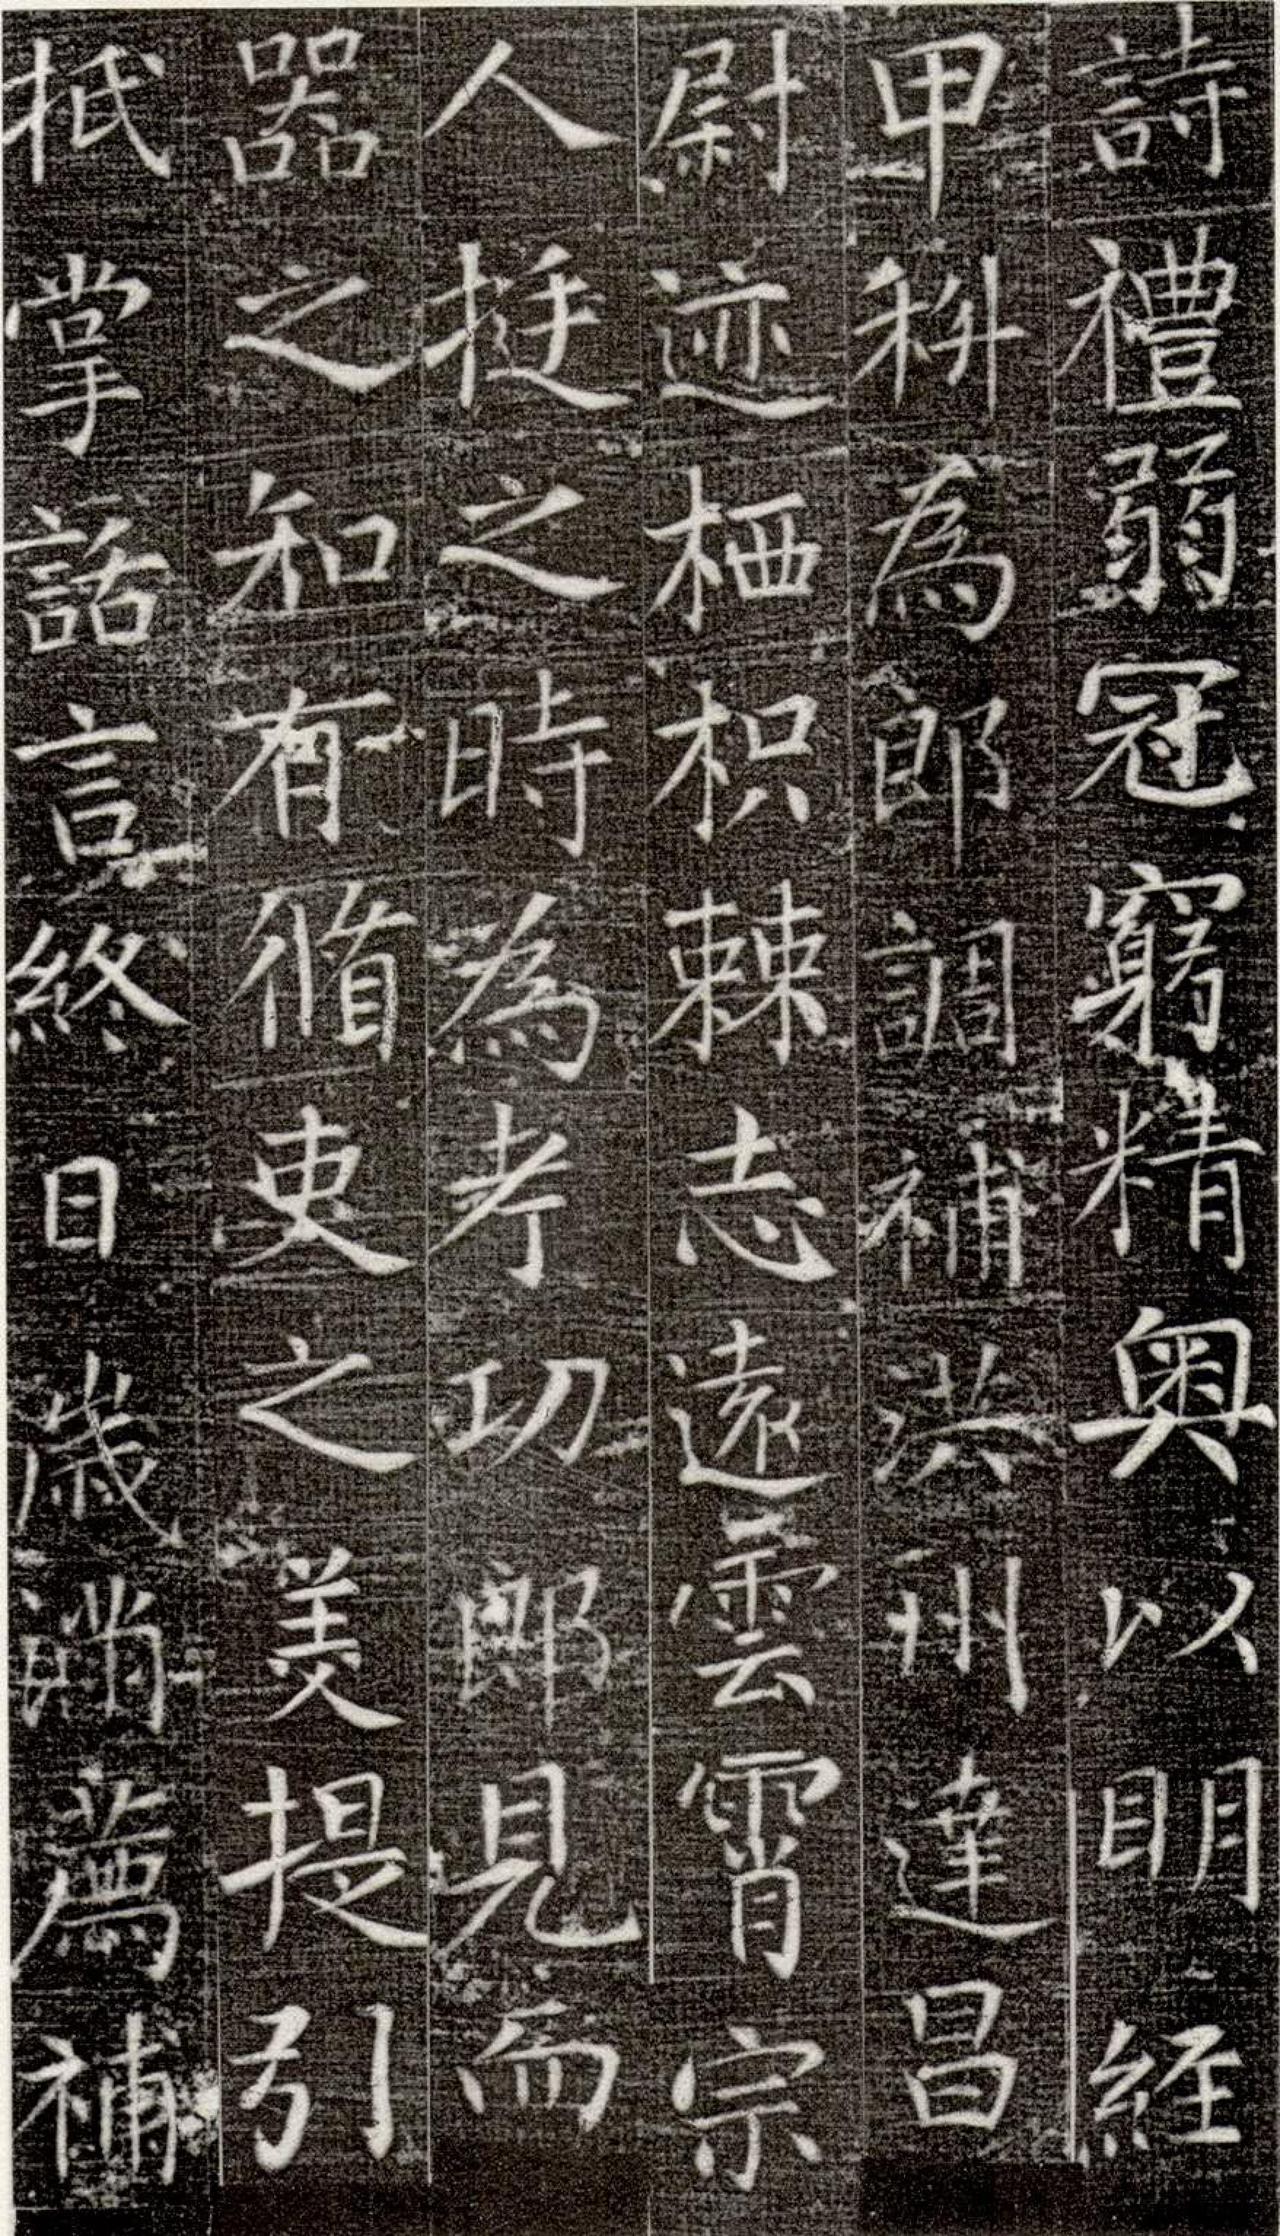 詩禮弱冠窮精奧以明経
甲科為郎調補洪州達昌
尉迹栖枳棘志遠雲霄宗
人挺之時為考功郎見而
器之知有脩吏之美提引
抵掌話言終日歲滿薦補